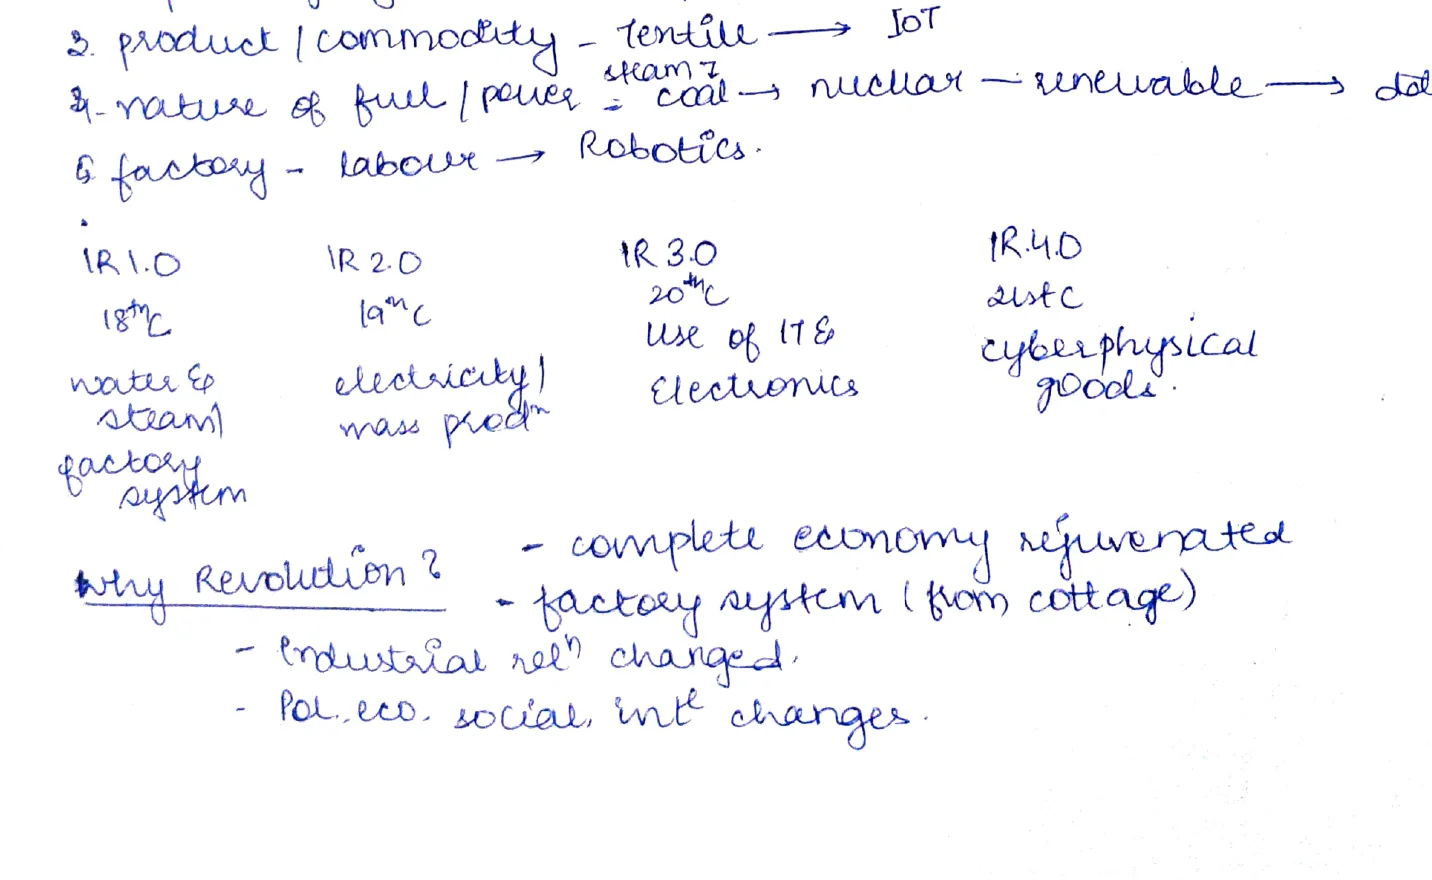 3. product / commodity - textile → IoT
4. nature of fuel / power - steam & coal → nuclear - renewable →
5. factory - labour → Robotics.
IR 1.0 IR 2.0 IR 3.0 IR 4.0
18th C 19th C 20th C 21st C
water & electricity / use of IT & cyberphysical
steam / mass prodn Electronics goods.
factory
system
Why Revolution? - complete economy rejuvenated
- factory system (from cottage)
- Industrial reln changed.
- Pol. eco. social, intl changes.